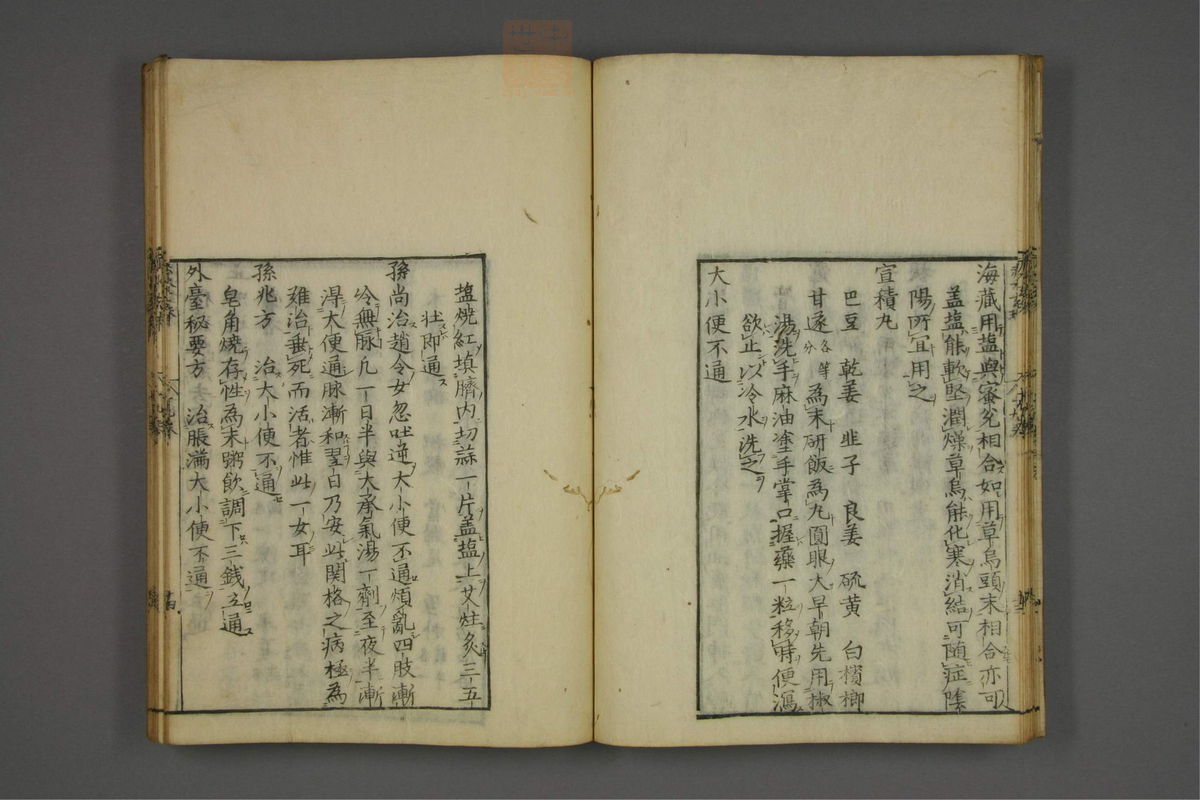 海藏用塩與蜜煎相合如用草烏頭末相合亦可
盖塩能軟堅潤燥草烏能化寒消結可随症陰
陽所宜用之
宣積丸
巴豆　乾姜　韭子　良姜　硫黄　白檳榔
甘遂各等分為末研飯為丸圓眼大早朝先用椒
湯洗手麻油塗手掌口握藥一粒移時便瀉
欲止以冷水洗之
大小便不通
塩焼紅填臍内切蒜一片盖塩上艾炷灸三五
壮即通
孫尚治趙令女忽吐逆大小便不通煩亂四肢漸
冷無脉凡一日半與大承氣湯一劑至夜半漸
淂大便通脉漸和翌日乃安此関格之病極為
难治垂死而活者惟此一女耳
孫兆方　治大小便不通
皂角焼存性為末粥飲調下三銭立通
外臺秘要方　治脹満大小便不通